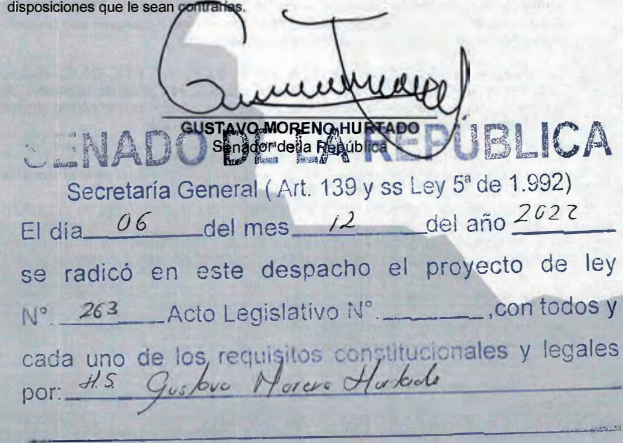 disposiciones que le sean contrarias.
GUSTAVO MORENO HURTADO
Senador de la República
SENADO DE LA REPUBLICA
Secretaría General ( Art. 139 y ss Ley 5ª de 1.992)
El día 06 del mes 12 del año 2022
se radicó en este despacho el proyecto de ley
N°. 263 Acto Legislativo N°. ,con todos y
cada uno de los requisitos constitucionales y legales
por: H.S Gustavo Moreno Hurtado